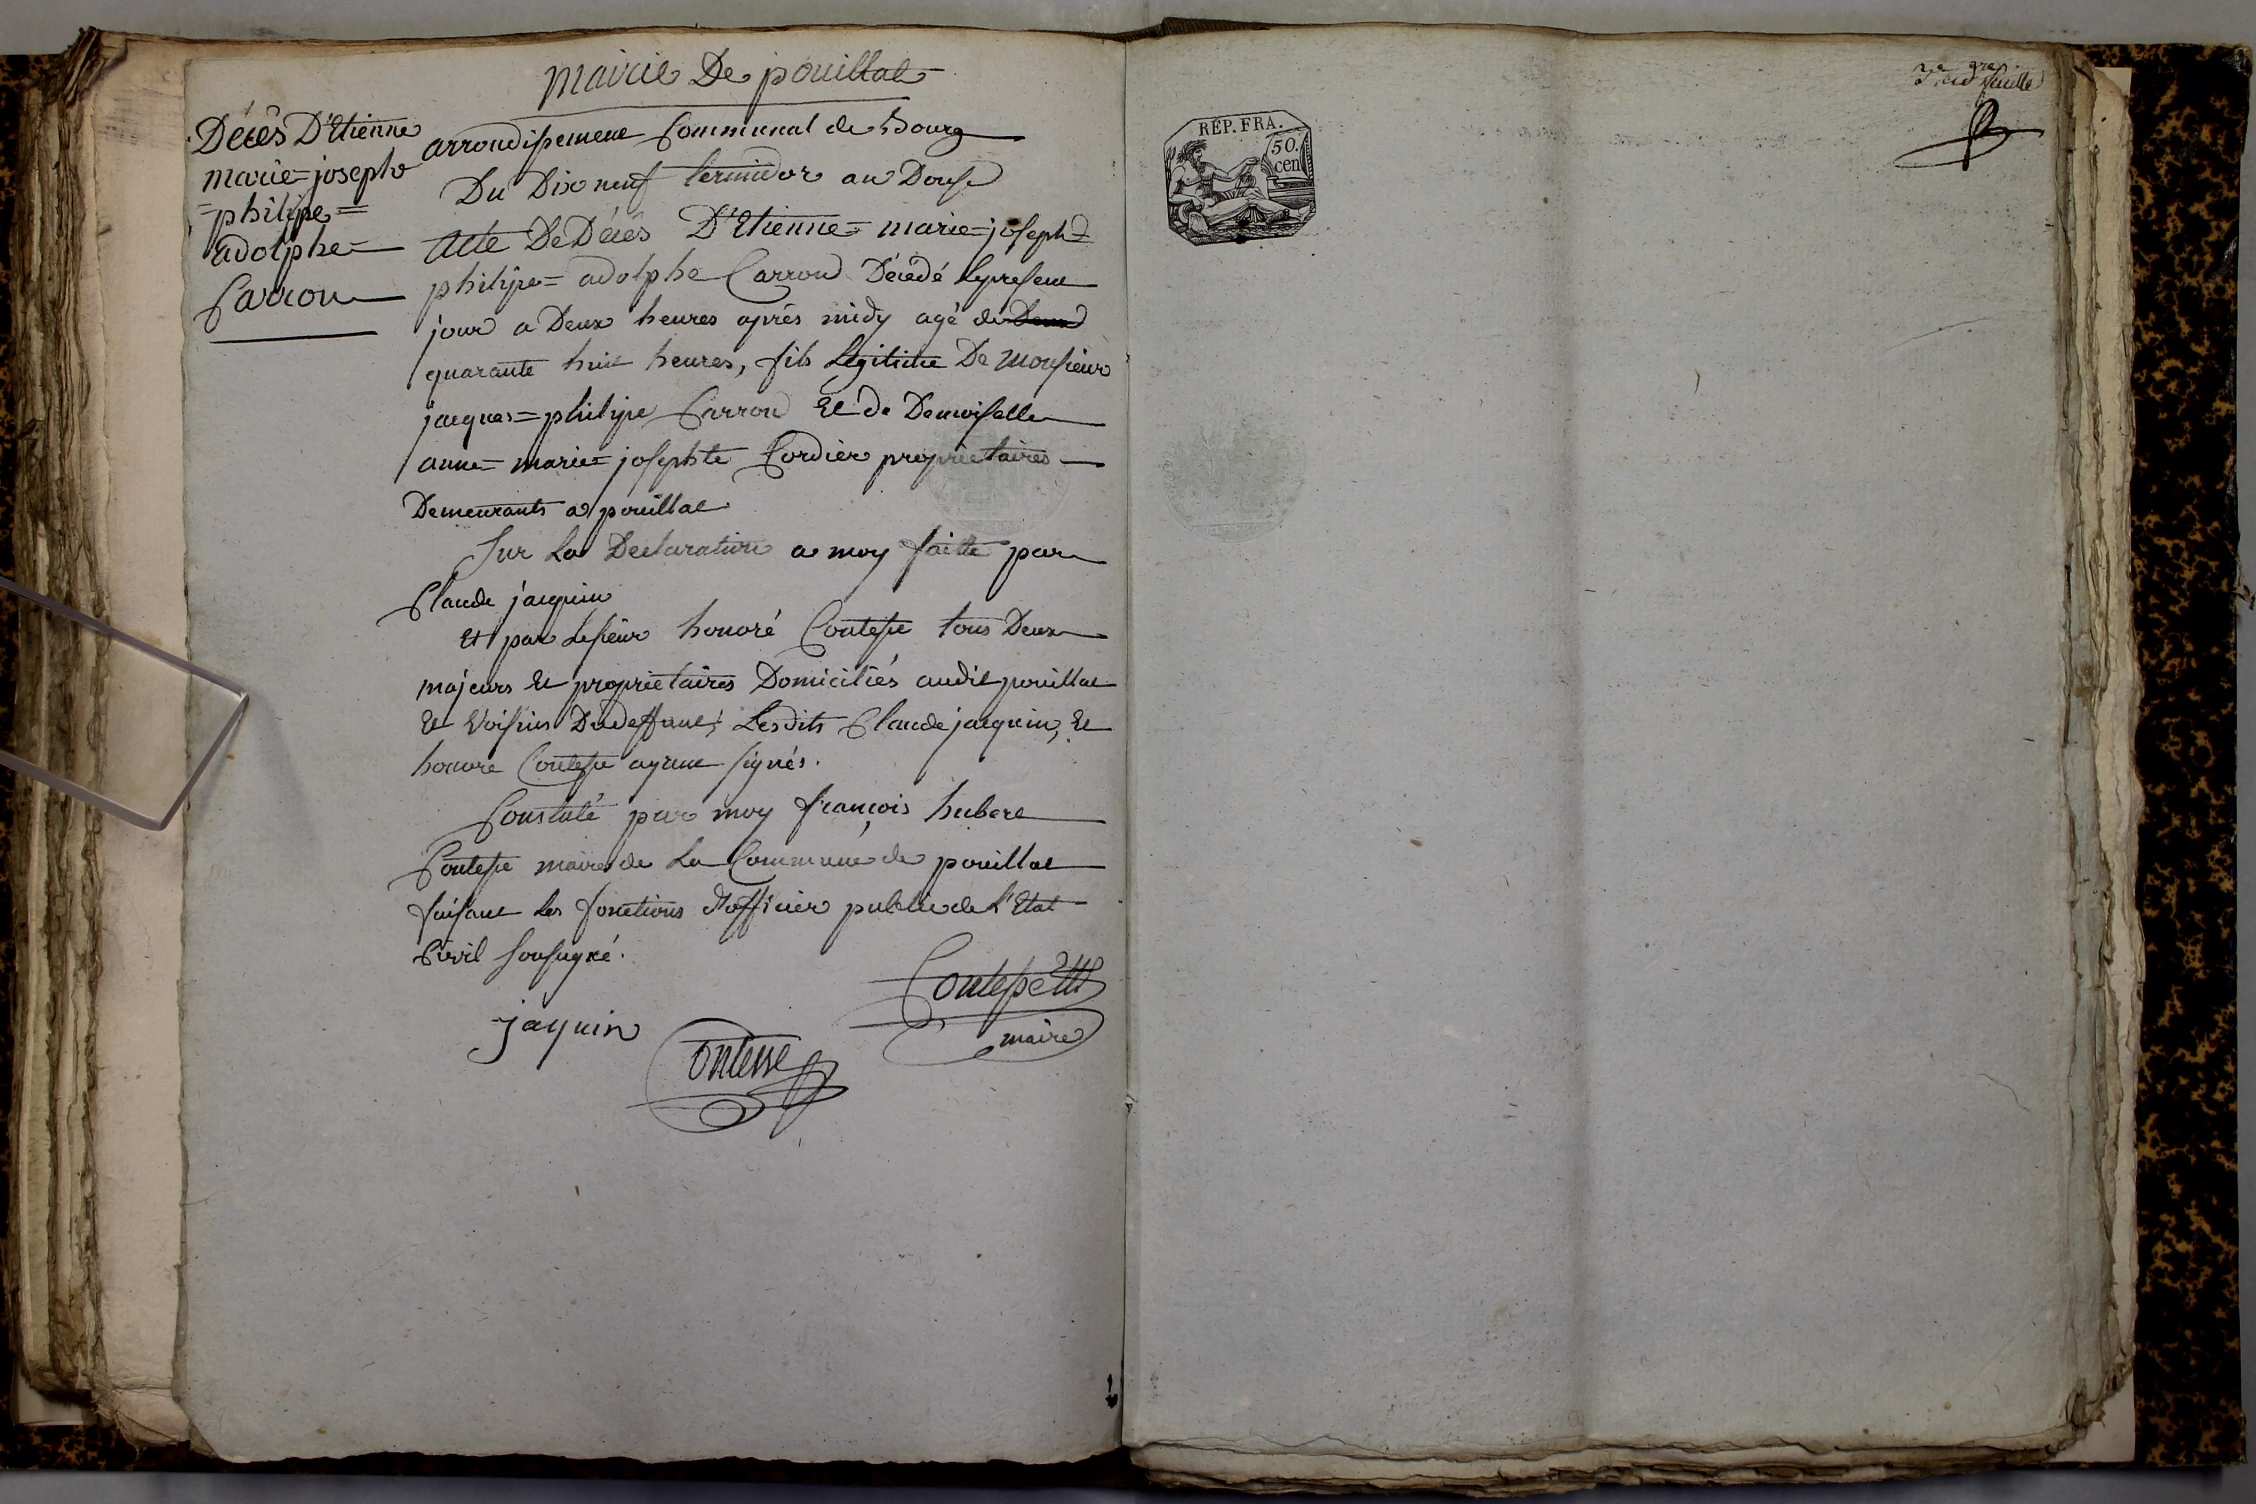 mairie De pouillat
Décês D'Etienne
marie=joseph
=philipe=
adolphe=
Carron
arrondissement Communal de Bourg
Du Dix neuf termidor an Douse
Acte De Décês D'Etienne=marie=joseph=
philipe=adolphe Carron Décédé le present
jour a Deux heures aprés midy agé de
quarante huit heures, fils Légitime De Monsieur
jacques=philipe Carron Et de Demoiselle
anne=marie=josephte Cordier proprietaires
Demeurants a pouillat
Sur La Declaration a moy faitte par
Claude jacquin
Et par Le sieur honoré Contesse tous Deux
majeurs Et proprietaires Domiciliés audit pouillat
Et voisins Dudeffunt; Lesdits Claude jacquin, Et
honore Contesse ayant signés.
Constaté par moy françois hubert
Contesse maire de La Commune de pouillat
faisant les fonctions d'officier public de L'Etat
Civil soussigné.
Contesse
maire
jaquin
Contesse
RÉP. FRA.
50.
cen
3e feuille